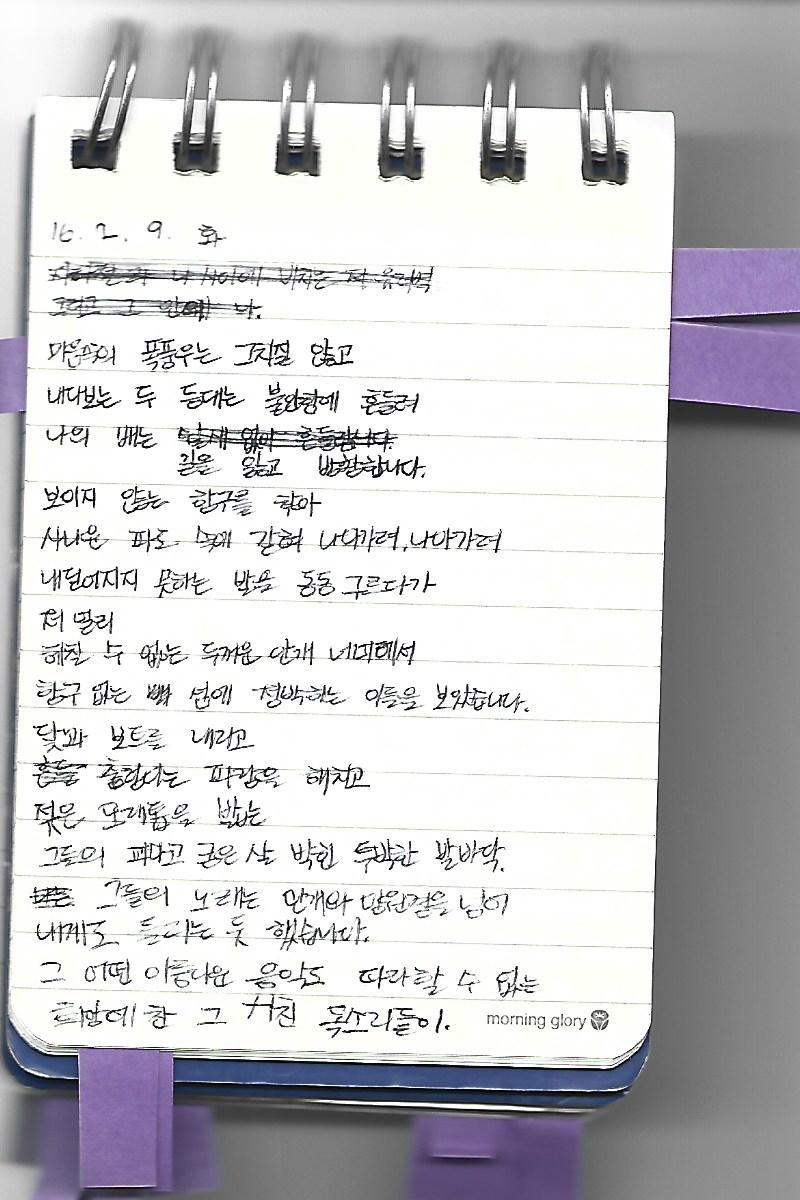 16. 2. 9. 화
나 사이에 비치는 저 유리벽
그리고 그 안에 나.
마음속의 폭풍우는 그치질 않고
내다보는 두 등대는 불안함에 흔들려
나의 배는
길을 잃고 방황합니다.
보이지 않는 항구를 찾아
사나운 파도 속에 갇혀 나아가려, 나아가려
내딛어지지 못하는 발을 동동 구르다가
저 멀리
헤칠 수 없는 두꺼운 안개 너머에서
항구 없는 섬에 정박하는 이들을 보았습니다.
닻과 보트를 내리고
출렁이는 파랑을 헤치고
젖은 모래톱을 밟는
그들의 굳은 살 박힌 투박한 발바닥.
그들의 노래는 안개와 망원경을 넘어
내게도 들리는 듯 했습니다.
그 어떤 아름다운 음악도 따라할 수 없는
희망에 찬 그 거친 목소리들이.
morning glory